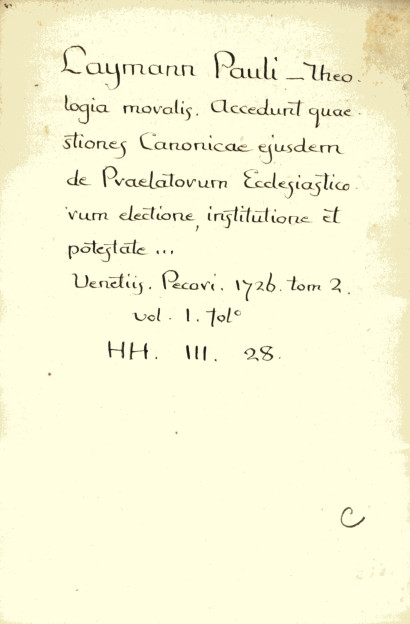 Laymann Pauli – Theo-
logia moralis. Accedunt quae-
stiones Canonicae ejusdem
de Praelatorum Ecclesiastico-
rum electione, institutione et
potestate ...
Venetiis. Pecori. 1726. tom 2.
vol. 1. fol°
HH. III. 28.
C